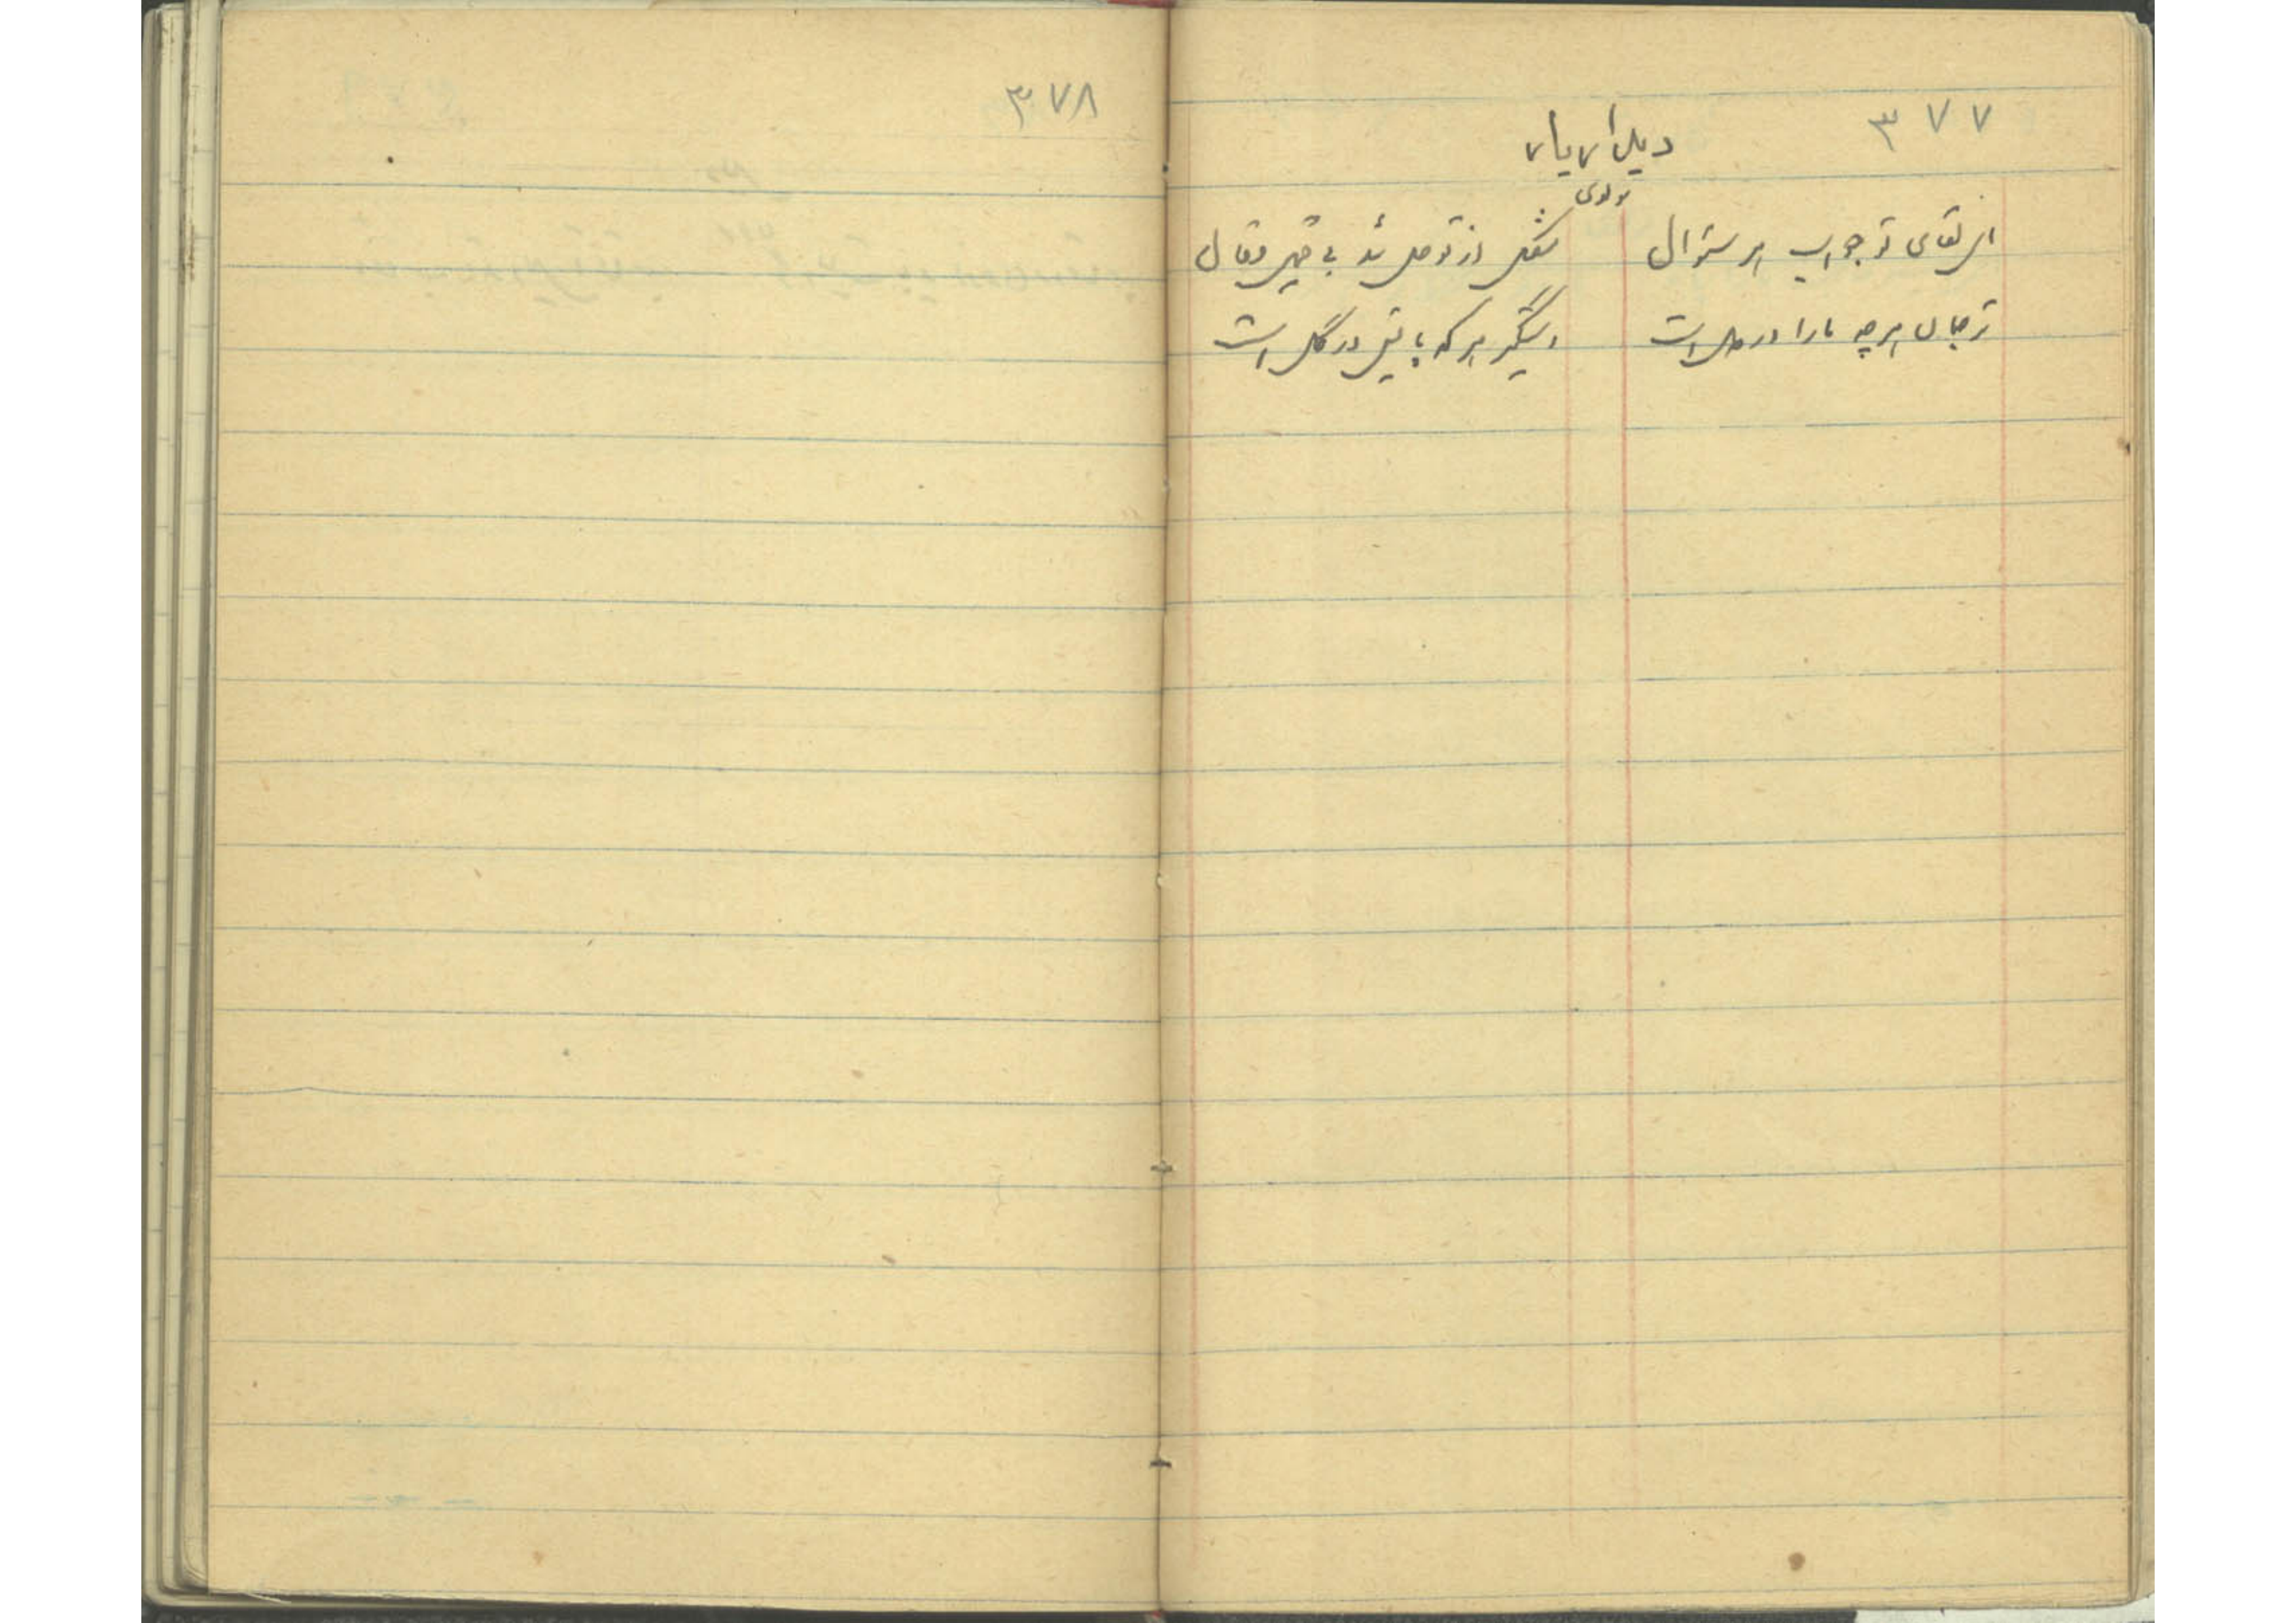 ۳۷۷
دیدار یار
مولوی
ای لقای تو جواب هر سئوال
مشکل از تو حل شود بی قیل و قال
ترجمان هر چه ما را در دل است
دستگیر هر که پایش در گل است
۳۷۸